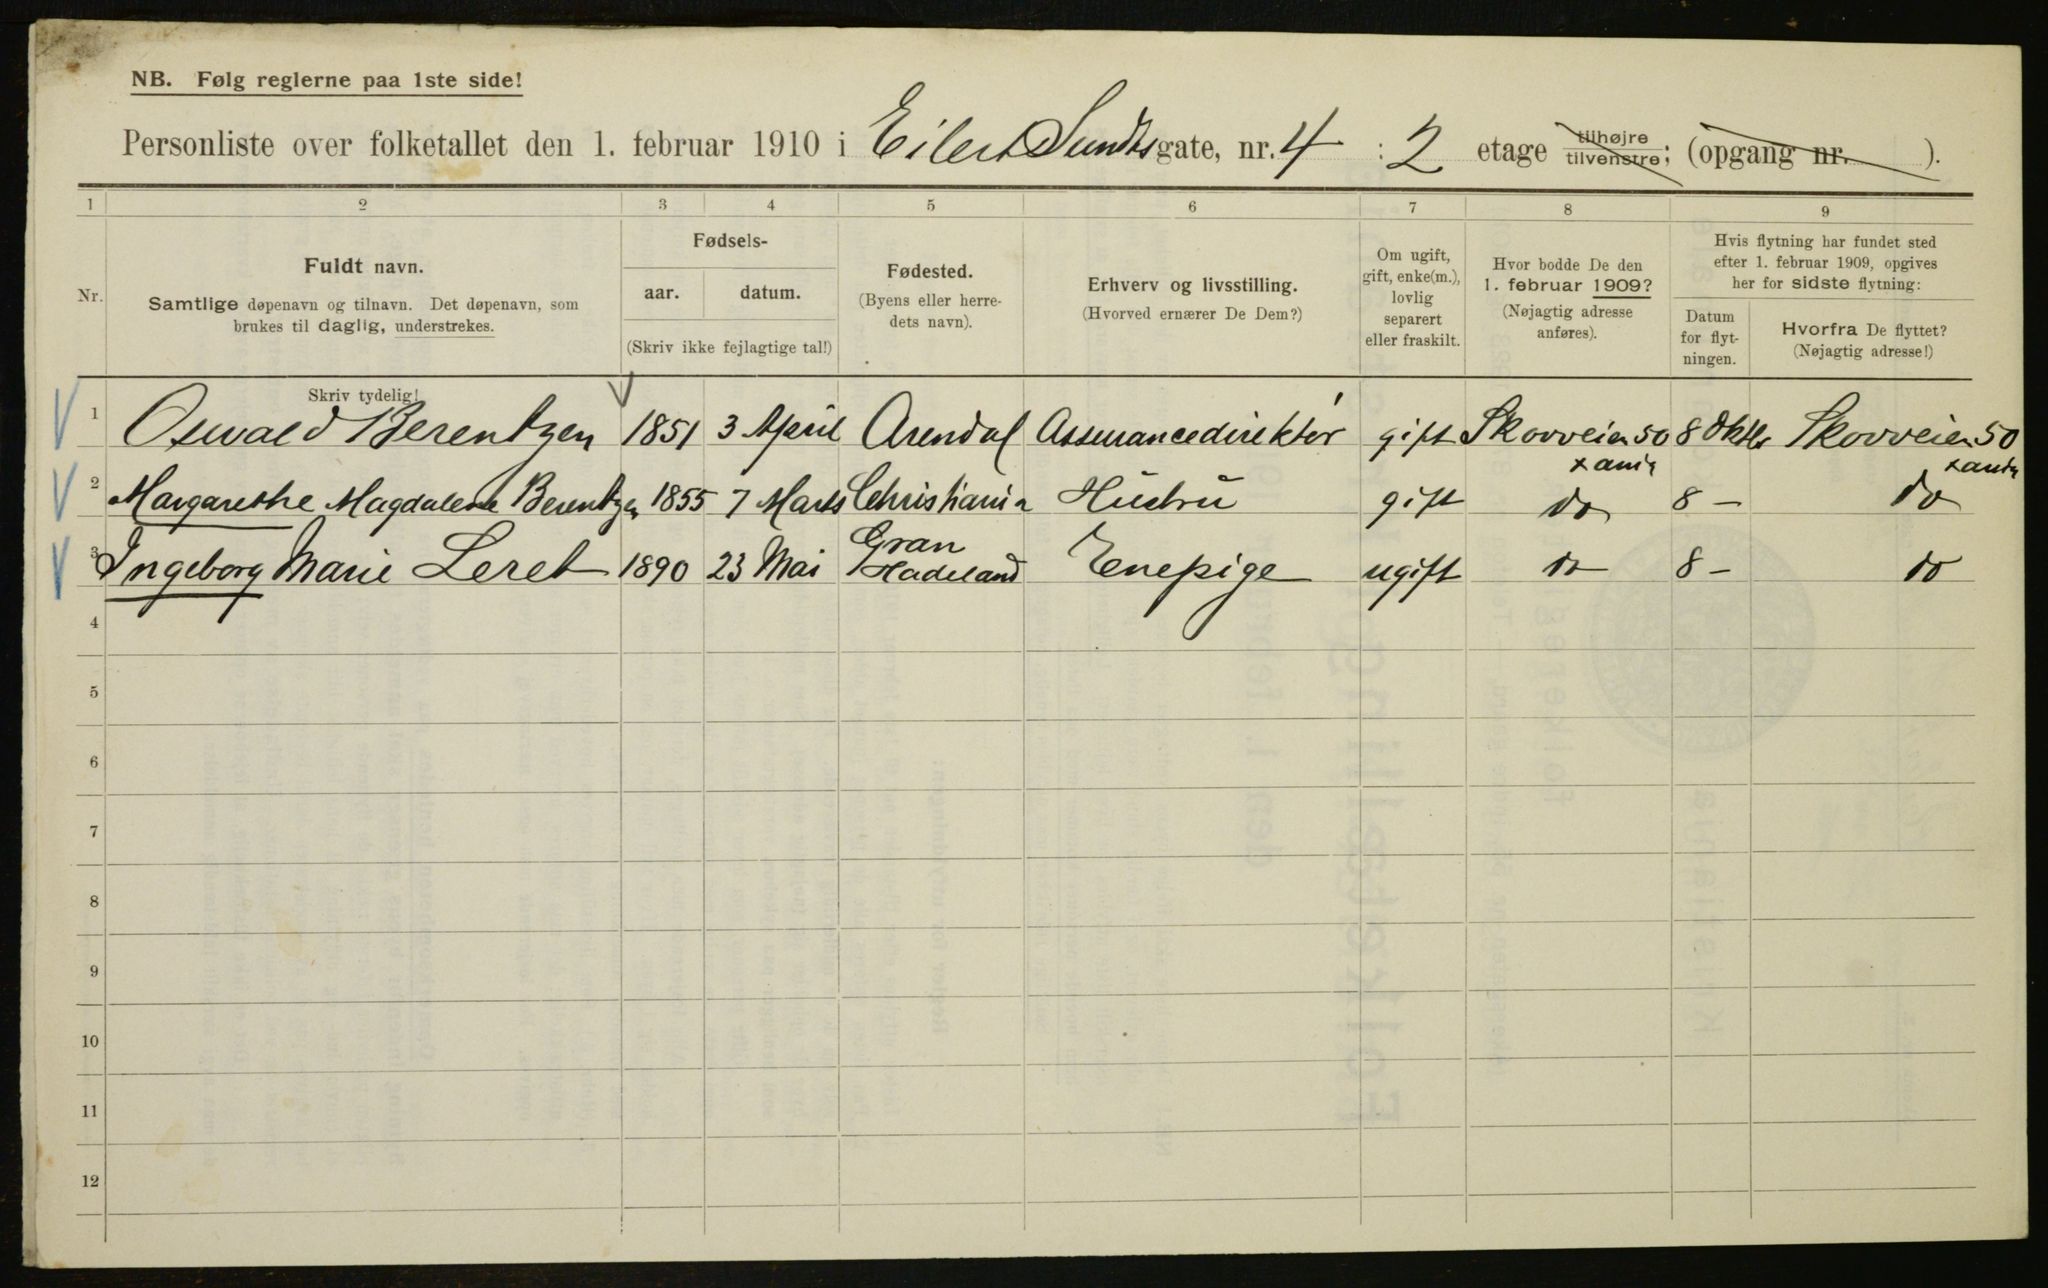 NB. Følg reglerne paa 1ste side!
Personliste over folketallet den 1. februar 1910 i Eilert Sundtsgate, nr. 4 : 2 etage tilhøjre tilvenstre; (opgang nr. ).
1 2 3 4 5 6 7 8 9
Nr.
Fuldt navn.
Samtlige døpenavn og tilnavn. Det døpenavn, som
brukes til daglig, understrekes.
Fødsels-
aar. datum.
(Skriv ikke fejlagtige tal!)
Fødested.
(Byens eller herre-
dets navn).
Erhverv og livsstilling.
(Hvorved ernærer De Dem?)
Om ugift,
gift, enke(m.),
lovlig
separert
eller fraskilt.
Hvor bodde De den
1. februar 1909?
(Nøjagtig adresse
anføres).
Hvis flytning har fundet sted
efter 1. februar 1909, opgives
her for sidste flytning:
Datum
for flyt-
ningen.
Hvorfra De flyttet?
(Nøjagtig adresse!)
Skriv tydelig!
1 Oswald Berentzen 1851 3 April Arendal Assurancedirektør gift Skovveien 50 8 Oktbr Skovveien 50
x ania x ania
2 Margarethe Magdalene Berentzen 1855 7 Marts Christiania Hustru gift do 8 – do
3 Ingeborg Marie Leret 1890 23 Mai Gran Hadeland Enepige ugift do 8 – do
4
5
6
7
8
9
10
11
12